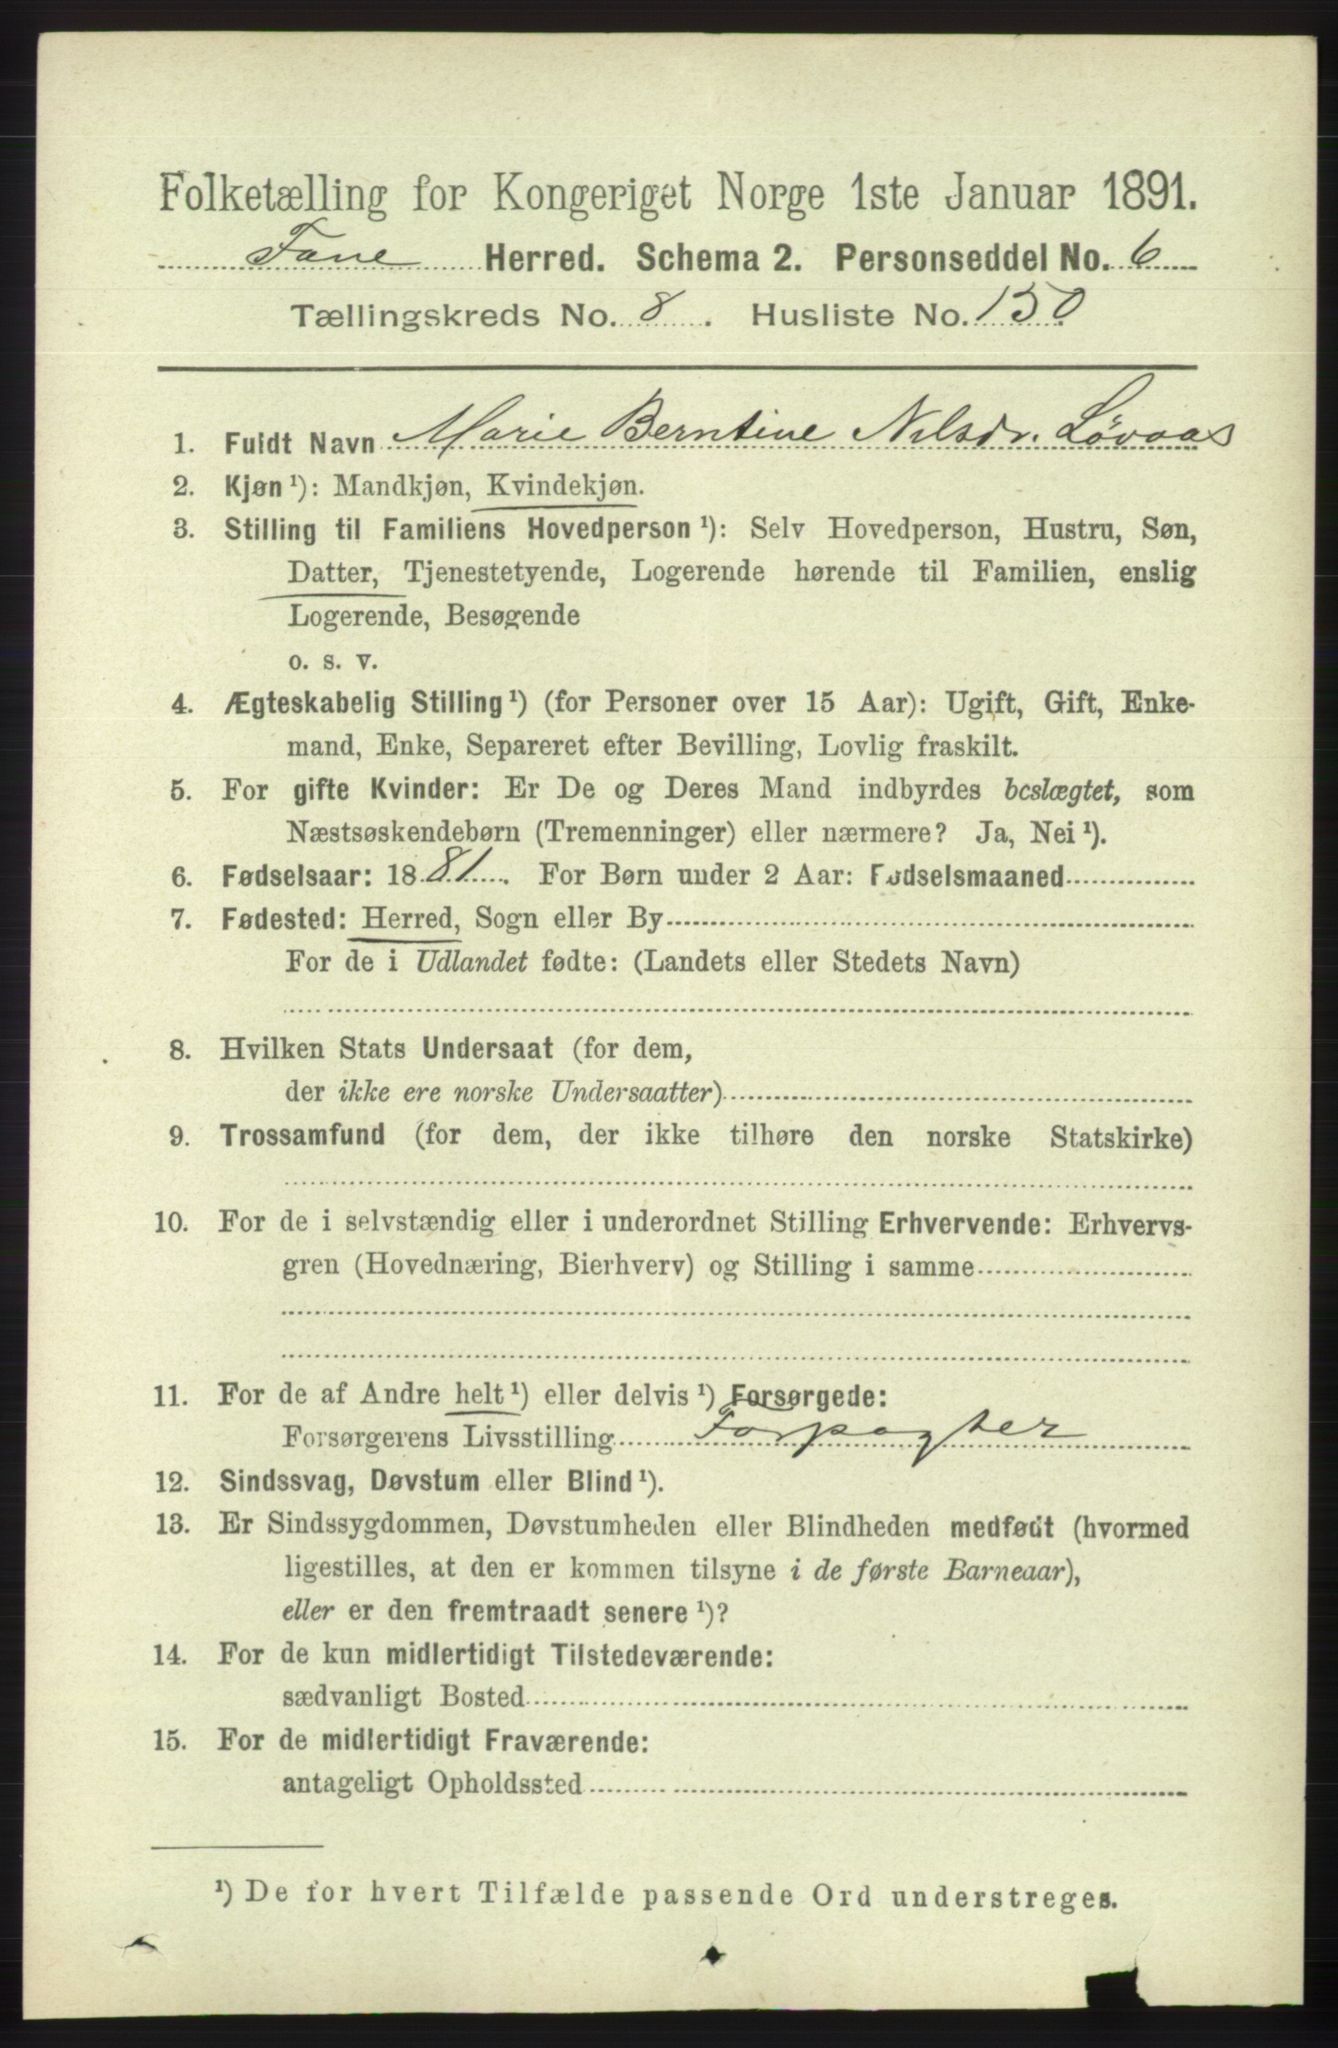 Folketælling for Kongeriget Norge 1ste Januar 1891.
Fane Herred. Schema 2. Personseddel No. 6
Tællingskreds No. 8. Husliste No. 150
1. Fuldt Navn Marie Berntine Nilsdr. Løvaas
2. Kjøn ¹): Mandkjøn, Kvindekjøn.
3. Stilling til Familiens Hovedperson ¹): Selv Hovedperson, Hustru, Søn,
Datter, Tjenestetyende, Logerende hørende til Familien, enslig
Logerende, Besøgende
o. s. v.
4. Ægteskabelig Stilling ¹) (for Personer over 15 Aar): Ugift, Gift, Enke-
mand, Enke, Separeret efter Bevilling, Lovlig fraskilt.
5. For gifte Kvinder: Er De og Deres Mand indbyrdes beslægtet, som
Næstsøskendebørn (Tremenninger) eller nærmere? Ja, Nei ¹).
6. Fødselsaar: 1881. For Børn under 2 Aar: Fødselsmaaned
7. Fødested: Herred, Sogn eller By
For de i Udlandet fødte: (Landets eller Stedets Navn)
8. Hvilken Stats Undersaat (for dem,
der ikke ere norske Undersaatter)
9. Trossamfund (for dem, der ikke tilhøre den norske Statskirke)
10. For de i selvstændig eller i underordnet Stilling Erhvervende: Erhvervs-
gren (Hovednæring, Bierhverv) og Stilling i samme
11. For de af Andre helt ¹) eller delvis ¹) Forsørgede:
Forsørgerens Livsstilling Forpagter
12. Sindssvag, Døvstum eller Blind ¹).
13. Er Sindssygdommen, Døvstumheden eller Blindheden medfødt (hvormed
ligestilles, at den er kommen tilsyne i de første Barneaar),
eller er den fremtraadt senere ¹)?
14. For de kun midlertidigt Tilstedeværende:
sædvanligt Bosted
15. For de midlertidigt Fraværende:
antageligt Opholdssted
¹) De for hvert Tilfælde passende Ord understreges.